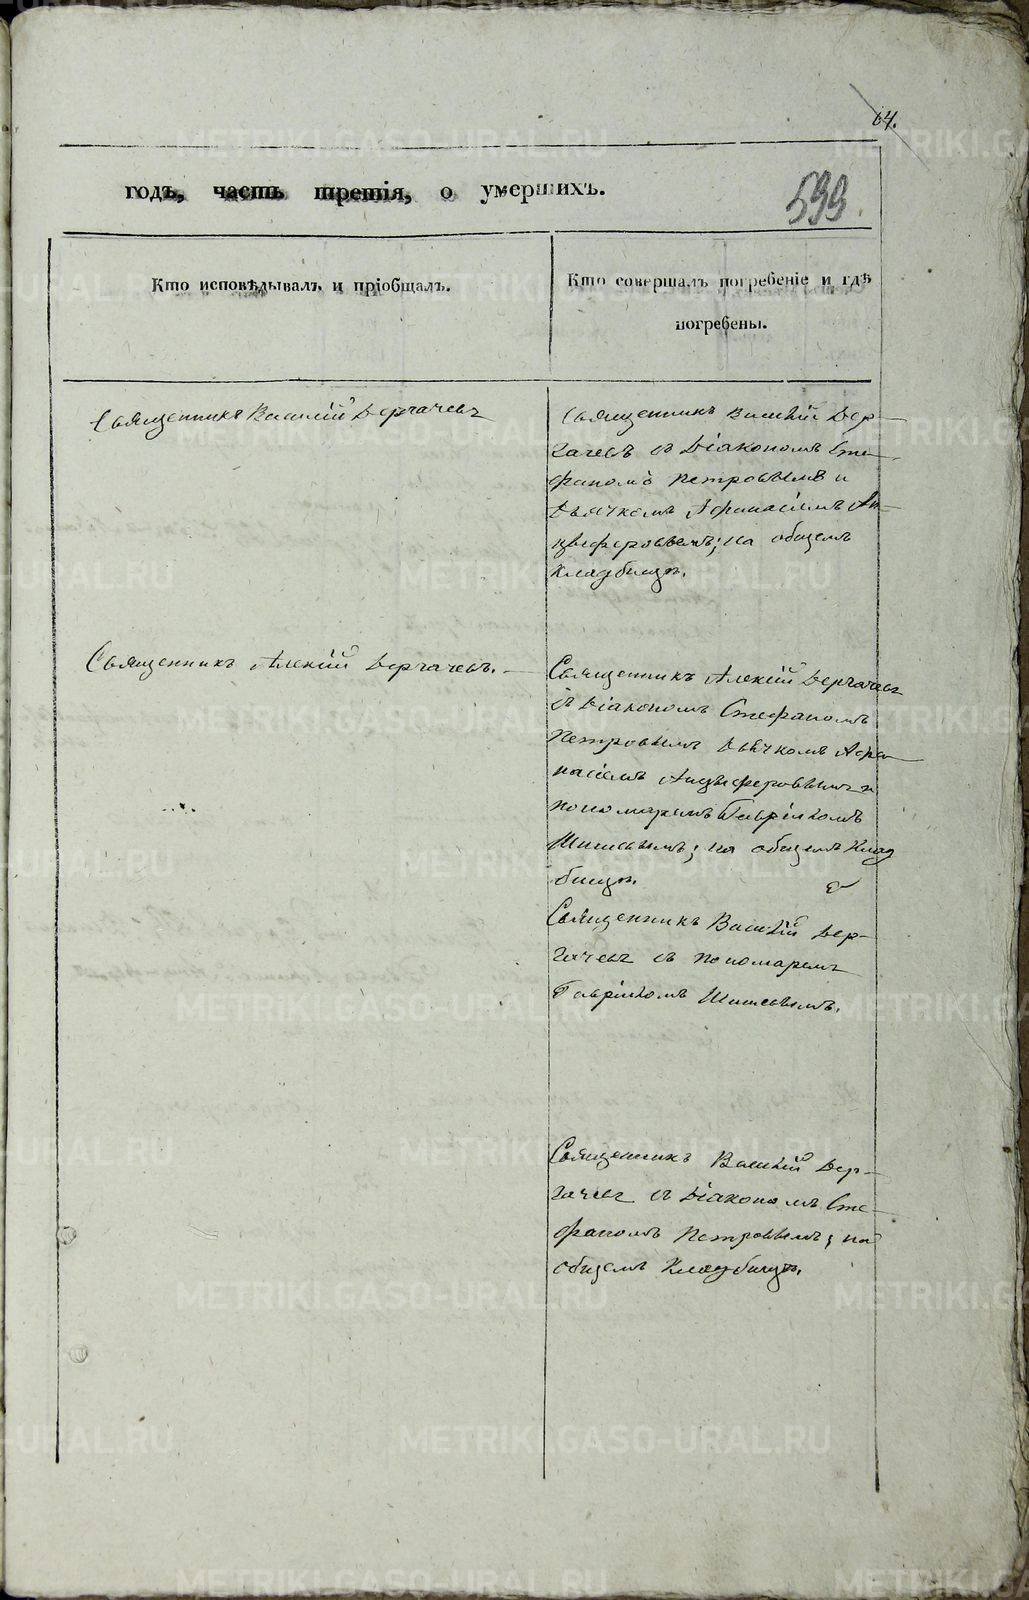 64.
годъ, часть третія, о умершихъ.
599
Кто исповѣдывалъ и пріобщалъ.
Кто совершалъ погребеніе и гдѣ
погребены.
Священникъ Василій Дергачевъ
Священникъ Василій Дер-
гачевъ съ Діакономъ Сте-
фаномъ Петровымъ и
Дьячкомъ Афанасіемъ Ан-
цыферовымъ; на общемъ
кладбищѣ.
Священникъ Алексій Дергачевъ.
Священникъ Алексій Дергачевъ
съ Діакономъ Стефаномъ
Петровымъ Дьячкомъ Афа-
насіемъ Анцыферовымъ и
пономаремъ Гавріиломъ
на общемъ клад
бищѣ.
Священникъ Василій Дер-
гачевъ съ пономаремъ
Гавріиломъ
Священникъ Василій Дер-
гачевъ съ Діакономъ Сте-
фаномъ Петровымъ; на
общемъ кладбищѣ.
METRIKI.GASO-URAL.RU